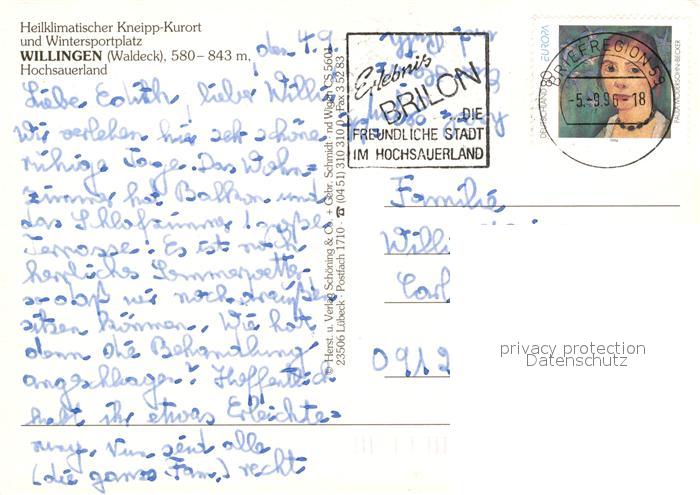 Heilklimatischer Kneipp-Kurort
und Wintersportplatz
WILLINGEN (Waldeck), 580–843 m,
Hochsauerland
den 4.9.
Liebe Edith, lieber Willi
Wir verleben hier sehr schöne
ruhige Tage. Das Wohn-
zimmer hat Balkon und
das Schlafzimmer 1 große
Terrasse. Es ist noch
herrliches Sommerwetter
so daß wir noch draußen
sitzen können. Wie hat
denn die Behandlung
angeschlagen? Hoffentlich
habt ihr etwas Erleichte-
rung. Nun seid alle
(die ganze Fam.) recht
© Herst. u. Verlag Schöning & Co. + Gebr. Schmidt
23506 Lübeck · Postfach 1710 · ☎ (04 51) 310 310
Fax 3 52 83
Wi CS 5601
Erlebnis
BRILON
...DIE
FREUNDLICHE STADT
IM HOCHSAUERLAND
BRIEFREGION 59
-5.-9.96-18
EUROPA
DEUTSCHLAND
80
PAULA MODERSOHN-BECKER
Familie
Willi
Carl
0912
privacy protection
Datenschutz